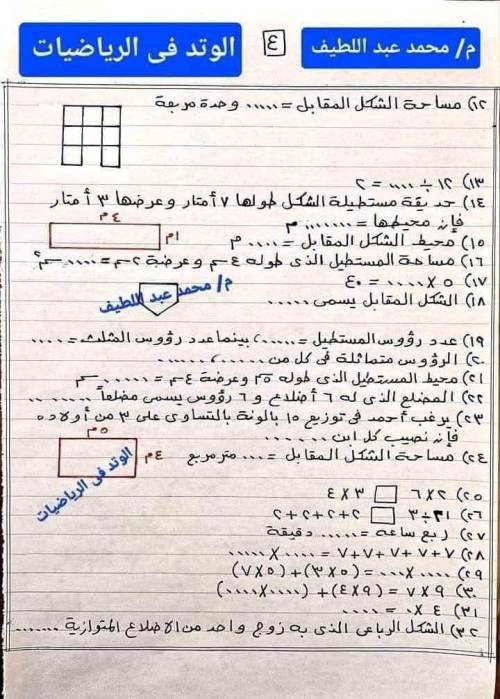 م/ محمد عبد اللطيف ٤ الوتد فى الرياضيات
١٢) مساحة الشكل المقابل = ..... وحدة مربعة
١٣) ١٢ ÷ .... = ٢
١٤) حديقة مستطيلة الشكل طولها ٧ أمتار وعرضها ٣ أمتار
فإن محيطها = ........ م
١٥) محيط الشكل المقابل = .... م
٤م
١م
١٦) مساحة المستطيل الذى طوله ٤سم وعرضة ٢سم = ..... سم٢
١٧) ٥ × ..... = ٤٠
١٨) الشكل المقابل يسمى .....
م/ محمد عبد اللطيف
١٩) عدد رؤوس المستطيل = ..... ، بينما عدد رؤوس المثلث = ....
٢٠) الرؤوس متماثلة فى كل من ..... ، ......
٢١) محيط المستطيل الذى طوله ٥سم وعرضة ٤سم = ...... سم
٢٢) المضلع الذى له ٦ أضلاع و ٦ رؤوس يسمى مضلعاً ........
٢٣) يرغب أحمد فى توزيع ١٥ بالونة بالتساوى على ٣ من أولاده
فإن نصيب كل ابن ......
٢٤) مساحة الشكل المقابل = .... متر مربع
٥م
٤م
الوتد فى الرياضيات
٢٥) ٢ × ٦ □ ٣ × ٤
٢٦) ٣١ ÷ ٣ □ ٢+٢+٢+٢
٢٧) ربع ساعة = ...... دقيقة
٢٨) ٧+٧+٧+٧+٧ = .... × .....
٢٩) .... × .... = (٥ × ٣) + (٥ × ٧)
٣٠) ٩ × ٧ = (٩ × ٤) + (.... × ....)
٣١) ٤ × ٠ = ....
٣٢) الشكل الرباعى الذى به زوج واحد من الاضلاع المتوازية ........